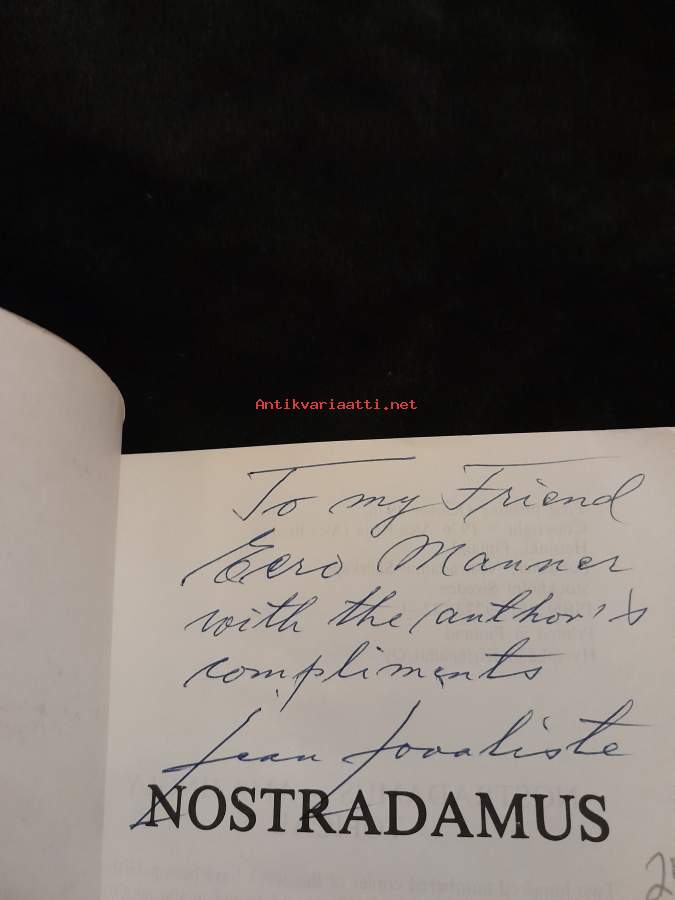 Antikvariaatti.net
To my Friend
Eero Manner
with the author's
compliments
Jean Jovaliste
NOSTRADAMUS